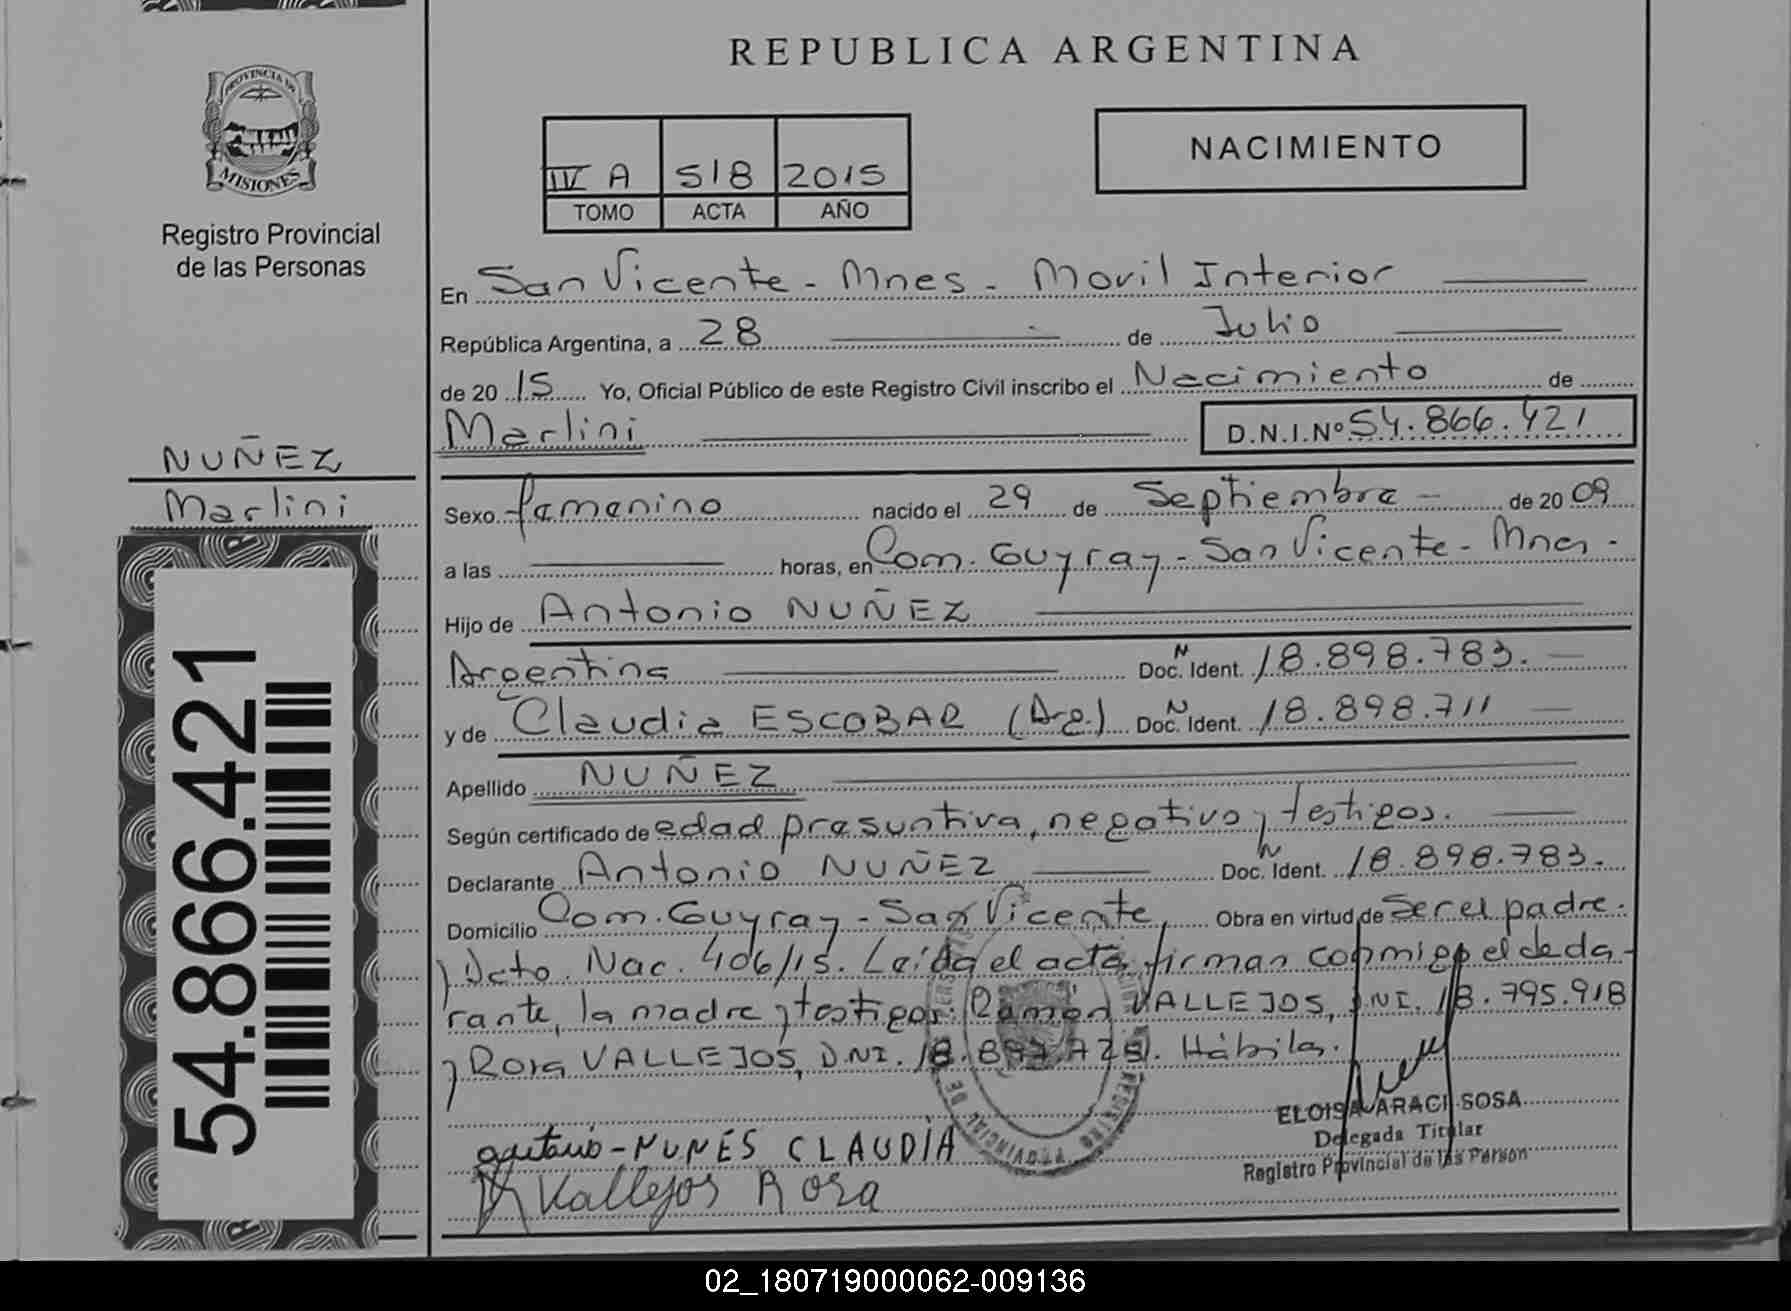 REPUBLICA ARGENTINA
PROVINCIA DE
MISIONES
Registro Provincial
de las Personas
NACIMIENTO
IV A 518 2015
TOMO ACTA AÑO
En San Vicente - Mnes - Movil Interior
República Argentina, a 28 de Julio
de 2015 Yo, Oficial Público de este Registro Civil inscribo el Nacimiento de
Marlini D.N.I.Nº 54.866.421
NUÑEZ
Marlini
Sexo famenino nacido el 29 de Septiembre - de 2009
a las horas, en Com. Guyray - San Vicente - Mnes -
Hijo de Antonio NUÑEZ
Argentina Doc. N Ident. 18.898.783.
y de Claudia ESCOBAR (Arg.) Doc. N Ident. 18.898.711
Apellido NUÑEZ
Según certificado de edad presuntiva, negativo y testigos.
Declarante Antonio NUÑEZ Doc. N Ident. 18.898.783.
Domicilio Com. Guyray - San Vicente Obra en virtud de Ser el padre.
y Dcto. Nac. 406/15. Leída el acta, firman conmigo el decla-
rante, la madre y testigos: Ramón VALLEJOS, D.NI. 18.795.918
y Rosa VALLEJOS, D.NI. Hábiles.
ELOISA ARACI SOSA
Delegada Titular
Registro Provincial de las Person
NUNES CLAUDIA
Vallejos Rosa
REGISTRO PROVINCIAL DE
54.866.421
02_180719000062-009136